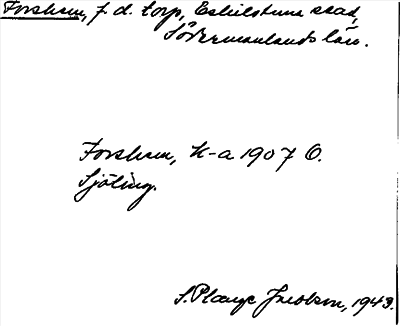 Forshem, f. d. torp, Eskilstuna stad,
Södermanlands län.
Forshem, K-a 1907 O.
Sjöling.
S. Plaeye Jacobson, 1943.